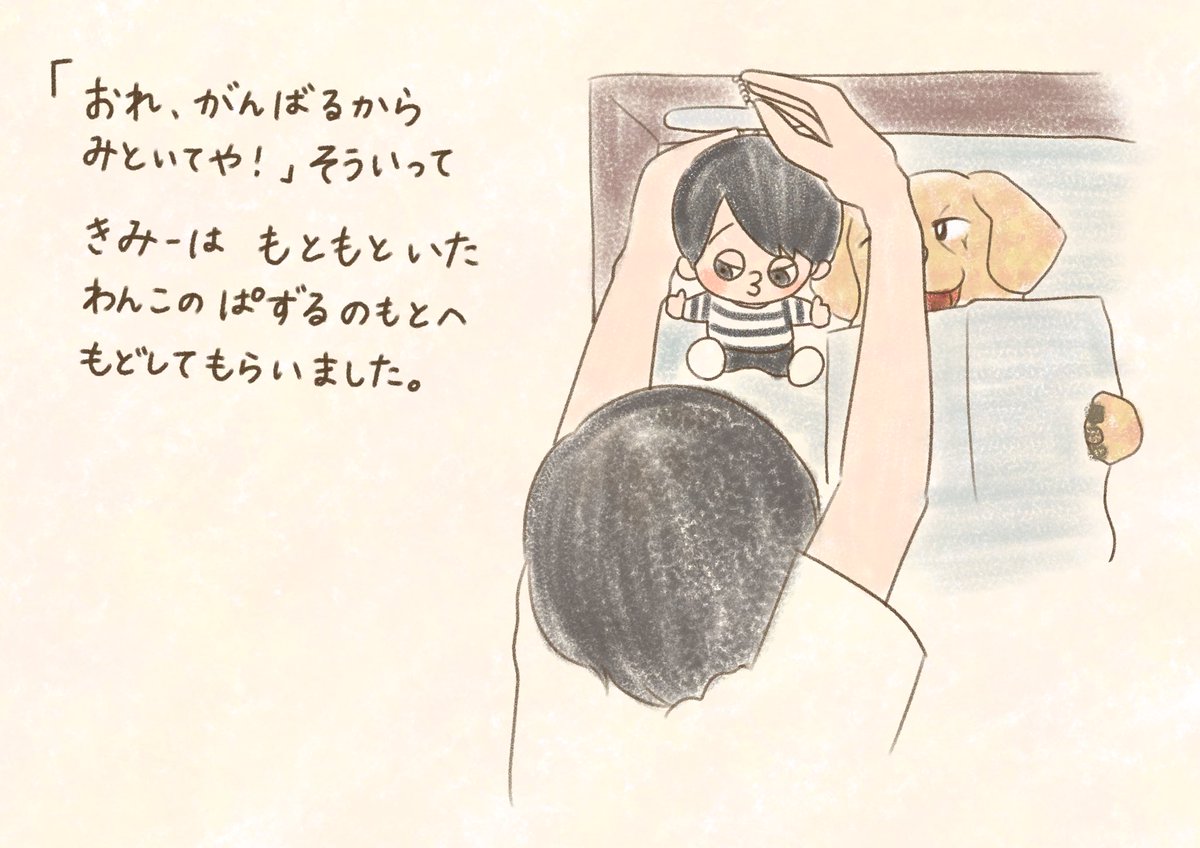 「おれ、がんばるから
みといてや!」そういって
きみーは もともといた
わんこの ぱずるのもとへ
もどしてもらいました。